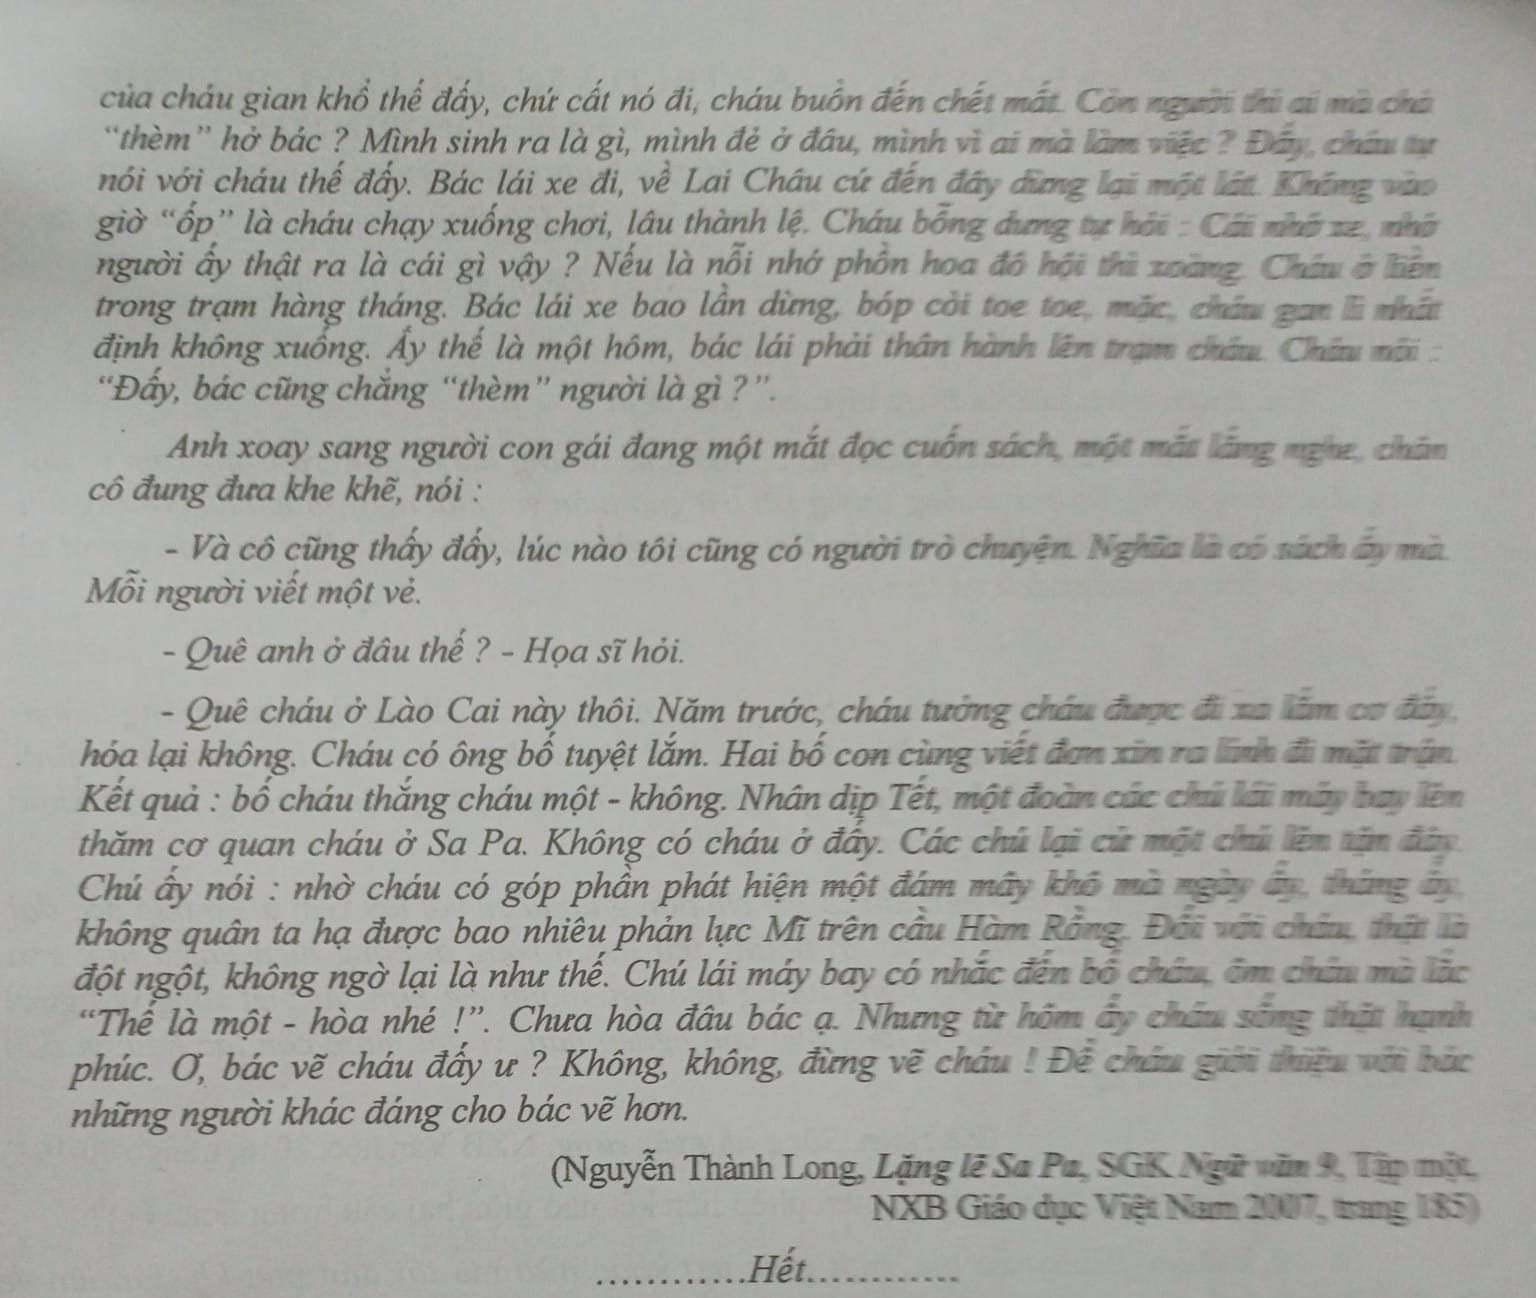 của cháu gian khổ thế đấy, chứ cất nó đi, cháu buồn đến chết mất. Còn người thì ai mà chả
“thèm” hở bác ? Mình sinh ra là gì, mình đẻ ở đâu, mình vì ai mà làm việc ? Đấy, cháu tự
nói với cháu thế đấy. Bác lái xe đi, về Lai Châu cứ đến đây dừng lại một lát. Không vào
giờ “ốp” là cháu chạy xuống chơi, lâu thành lệ. Cháu bỗng dưng tự hỏi : Cái nhớ xe, nhớ
người ấy thật ra là cái gì vậy ? Nếu là nỗi nhớ phồn hoa đô hội thì xoàng. Cháu ở liền
trong trạm hàng tháng. Bác lái xe bao lần dừng, bóp còi toe toe, mặc, cháu gan lì nhất
định không xuống. Ấy thế là một hôm, bác lái phải thân hành lên trạm cháu. Cháu nói :
“Đấy, bác cũng chẳng “thèm” người là gì ?”.
Anh xoay sang người con gái đang một mắt đọc cuốn sách, một mắt lắng nghe, chân
cô đung đưa khe khẽ, nói :
- Và cô cũng thấy đấy, lúc nào tôi cũng có người trò chuyện. Nghĩa là có sách ấy mà.
Mỗi người viết một vẻ.
- Quê anh ở đâu thế ? - Họa sĩ hỏi.
- Quê cháu ở Lào Cai này thôi. Năm trước, cháu tưởng cháu được đi xa lắm cơ đấy,
hóa lại không. Cháu có ông bố tuyệt lắm. Hai bố con cùng viết đơn xin ra lính đi mặt trận.
Kết quả : bố cháu thắng cháu một - không. Nhân dịp Tết, một đoàn các chú lái máy bay lên
thăm cơ quan cháu ở Sa Pa. Không có cháu ở đấy. Các chú lại cử một chú lên tận đây.
Chú ấy nói : nhờ cháu có góp phần phát hiện một đám mây khô mà ngày ấy, tháng ấy,
không quân ta hạ được bao nhiêu phản lực Mĩ trên cầu Hàm Rồng. Đối với cháu, thật là
đột ngột, không ngờ lại là như thế. Chú lái máy bay có nhắc đến bố cháu, ôm cháu mà lắc
“Thế là một - hòa nhé !”. Chưa hòa đâu bác ạ. Nhưng từ hôm ấy cháu sống thật hạnh
phúc. Ơ, bác vẽ cháu đấy ư ? Không, không, đừng vẽ cháu ! Để cháu giới thiệu với bác
những người khác đáng cho bác vẽ hơn.
(Nguyễn Thành Long, Lặng lẽ Sa Pa, SGK Ngữ văn 9, Tập một,
NXB Giáo dục Việt Nam 2007, trang 185)
.............Hết.............